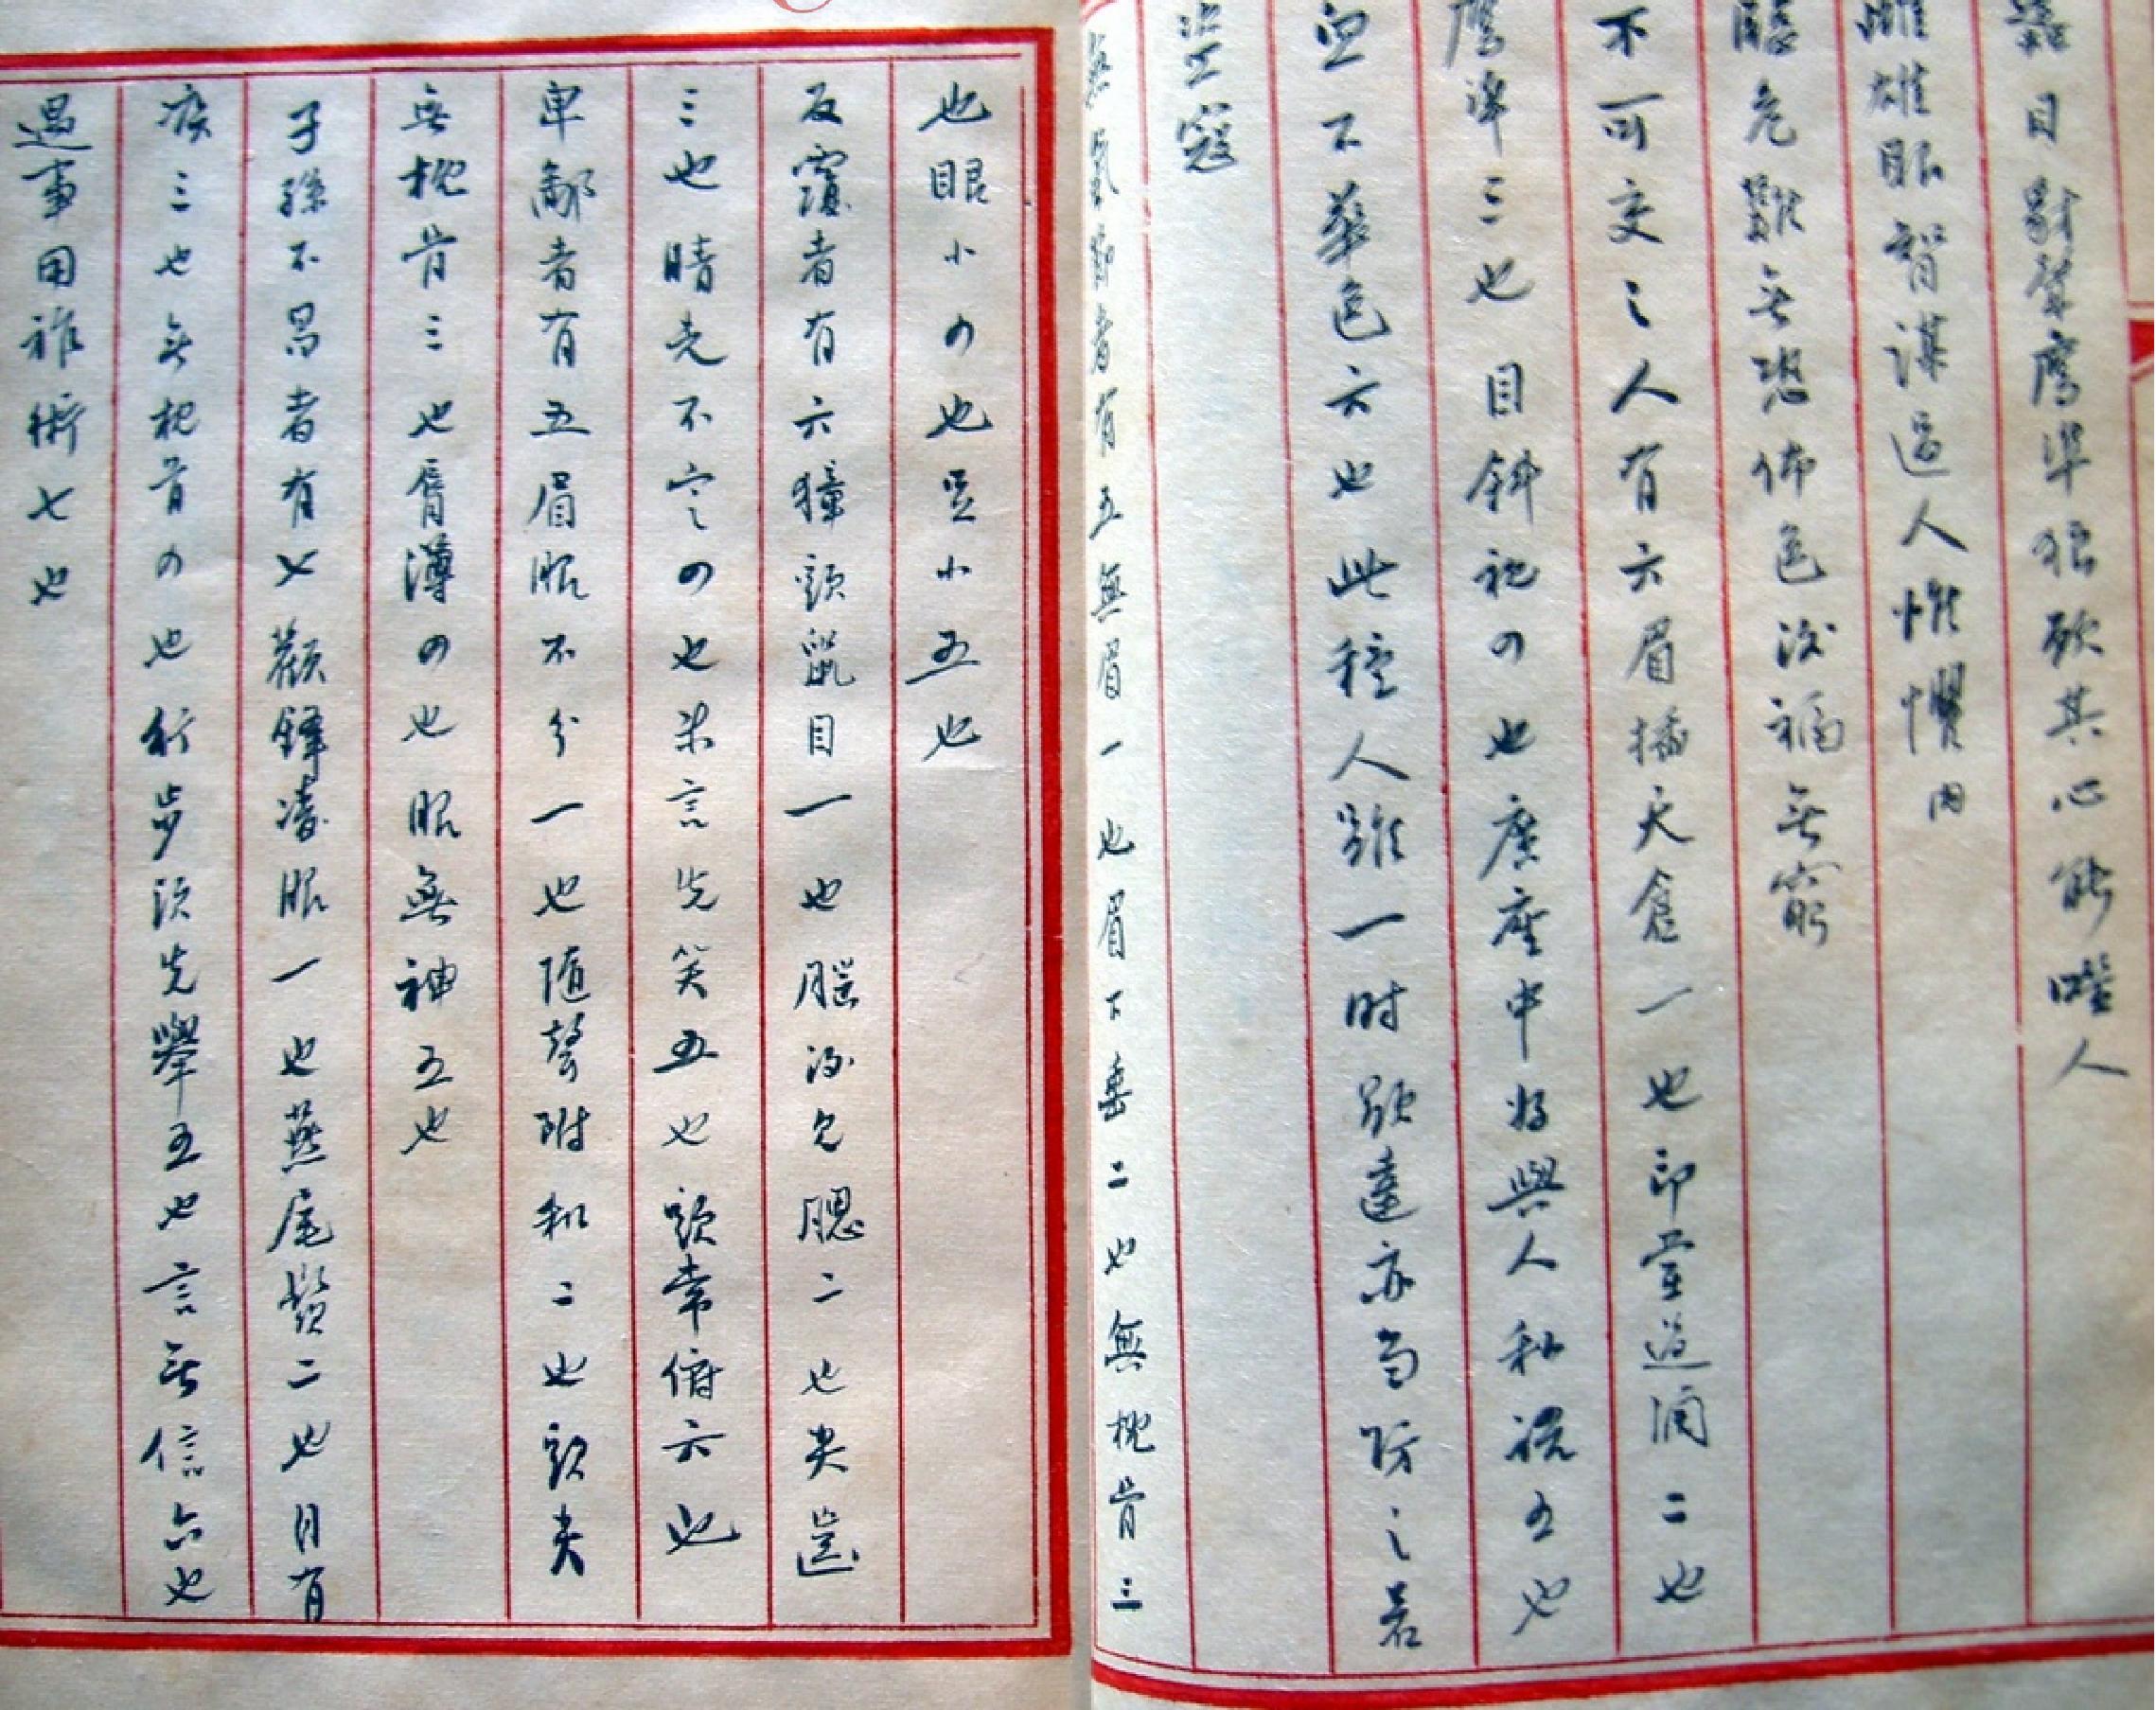 目 聲鷹準狼 其心能噬人
雌雄眼智謀過人惟懼內
膽危難無恐怖色 禍無窮
不可交之人有六眉播天倉一也印堂 二也
鷹準三也目斜視の也廣座中好與人私語五也
血不華色六也此種人雖一時 達亦當防之若
寇
無氣節者有五無眉一也眉下垂二也無枕骨三
也眼小の也 小五也
反覆者有六獐頭鼠目一也腦後見腮二也尖齒
三也睛光不定の也未言先笑五也頭常俯六也
卑鄙者有五眉眼不分一也隨聲附和二也頭尖
無枕骨三也脣薄の也眼無神五也
子孫不昌者有七顴鋒凌眼一也燕尾鬚二也目有
疾三也無枕骨の也行步頭先舉五也言無信六也
遇事用詐術七也